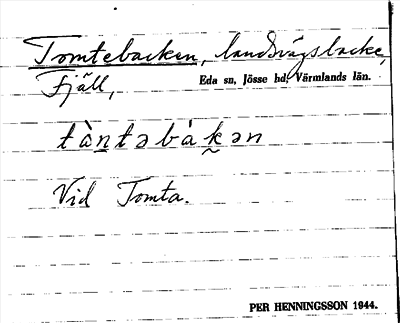 Tomtebacken, landsvägsbacke,
Fjäll, Eda sn, Jösse hd, Värmlands län.
tàntəbàkən
Vid Tomta.
PER HENNINGSSON 1944.